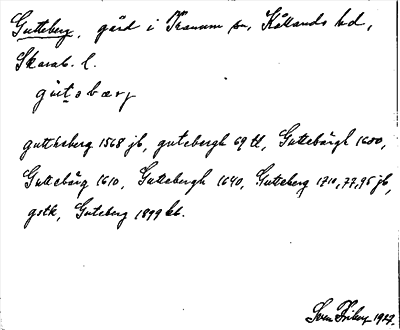 Gutteberg, gård i Tranum sn, Kållands hd,
Skarab. l.
gu̱tₔbærj
guttisberg 1568 jb, gutebergh 69 tl, Guttebärgh 1600,
Guttebärg 1610, Guttebergh 1640, Gutteberg 1710, 77, 95 jb,
gstk, Guteberg 1899 kb.
Sven Friberg 1927.